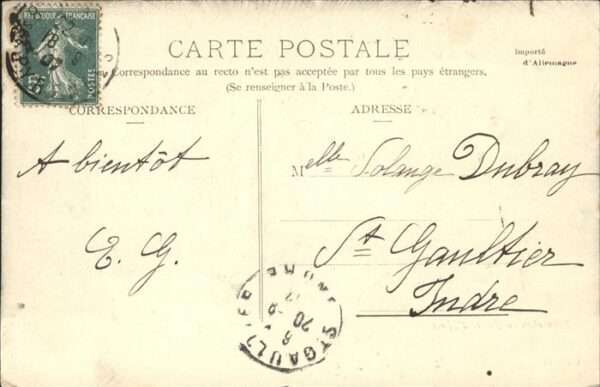 REPUBLIQUE FRANÇAISE
POSTES
CARTE POSTALE
Importé
d'Allemagne
Correspondance au recto n'est pas acceptée par tous les pays étrangers.
(Se renseigner à la Poste.)
CORRESPONDANCE
ADRESSE
A bientôt
E. G.
Melle Solange Dubray
St Gaultier
Indre
ST GAULTIER
INDRE